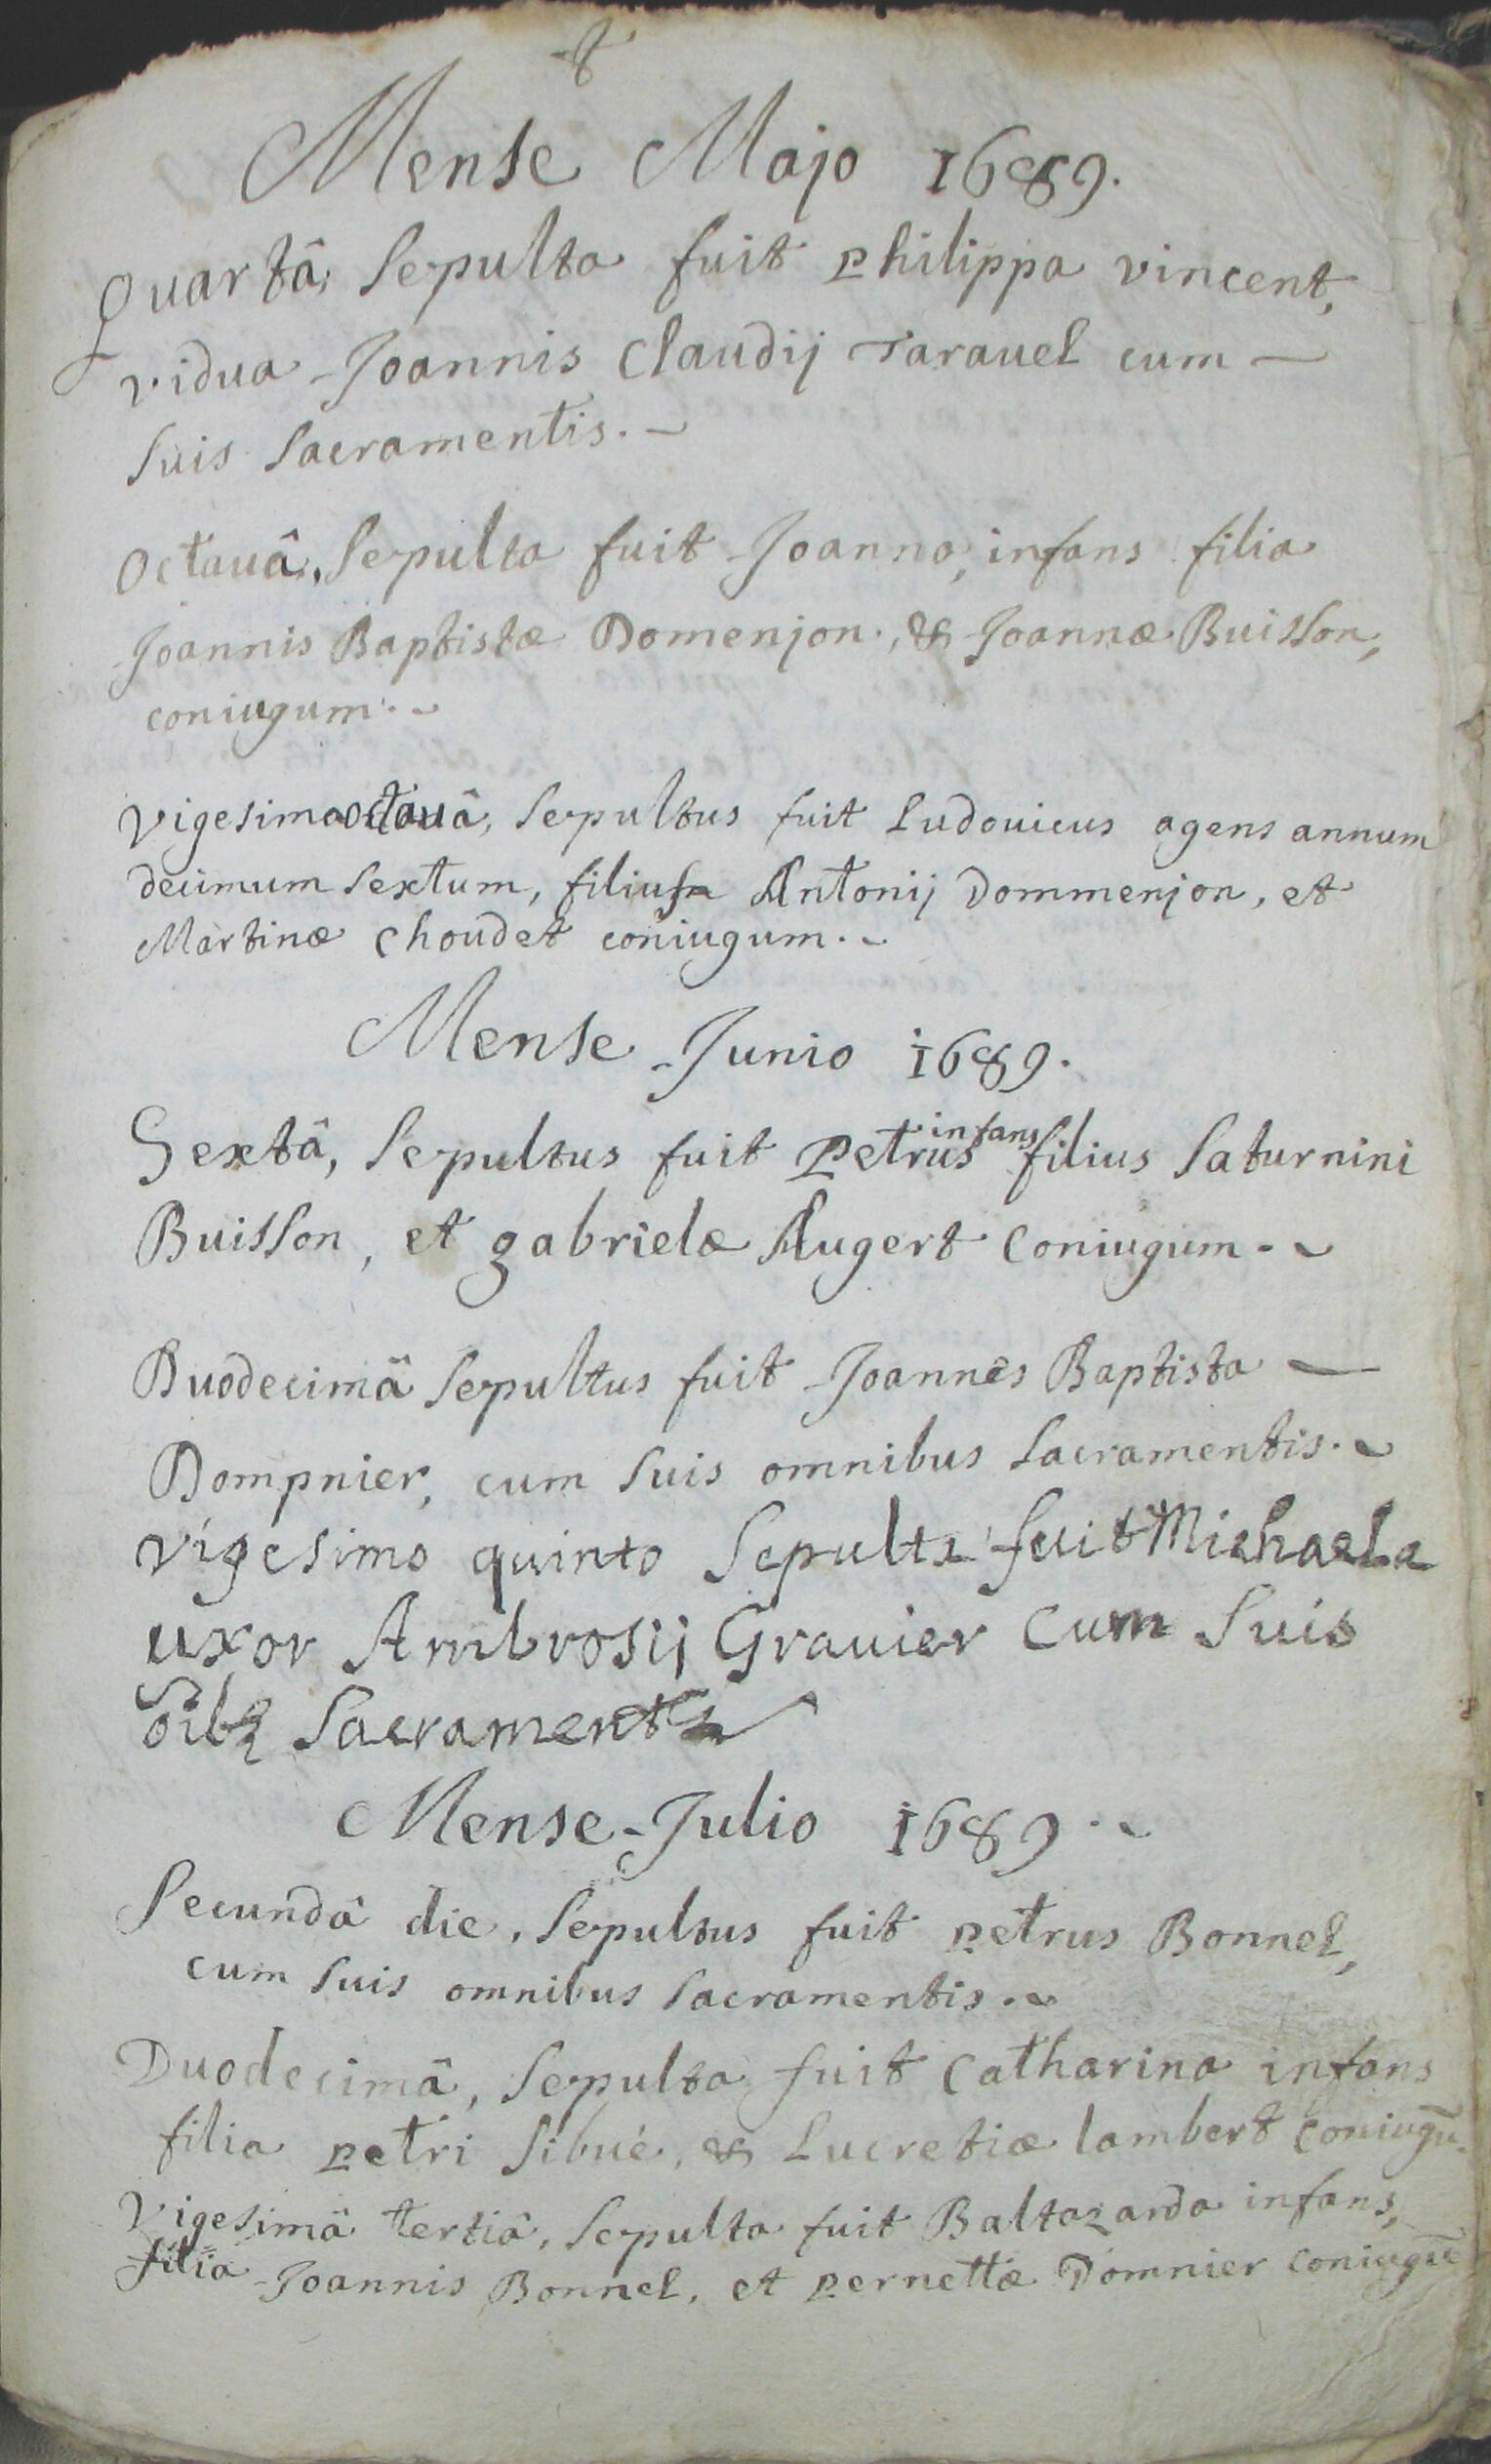 Mense Majo 1689.
Quartâ sepulta fuit philippa vincent,
vidua Joannis Claudij Tarauel cum
suis sacramentis.
Octauâ, sepulta fuit Joanna, infans filia
Joannis Baptistæ Domenjon, & Joannæ Buisson,
coniugum.
Vigesimaoctauâ, sepultus fuit Ludouicus agens annum
decimum sextum, filius Antonij Dommenjon, et
Martinæ Choudet coniugum.
Mense Junio 1689.
Sextâ, sepultus fuit petrus infans filius saturnini
Buisson, et gabrielæ Augert coniugum.
Duodecimâ sepultus fuit Joannes Baptista
Dompnier, cum suis omnibus sacramentis.
vigesimo quinto sepulta fuit Michaela
uxor Ambrosij Grauier cum suis
oibq sacramentis
Mense Julio 1689.
Secundâ die, sepultus fuit petrus Bonnel,
cum suis omnibus sacramentis.
Duodecimâ, sepulta fuit Catharina infans
filia petri sibué, & Lucretiæ lambert coniugū.
Vigesimâ tertiâ, sepulta fuit Baltazarda infans,
filia Joannis Bonnel, et pernettæ Domnier coniugū